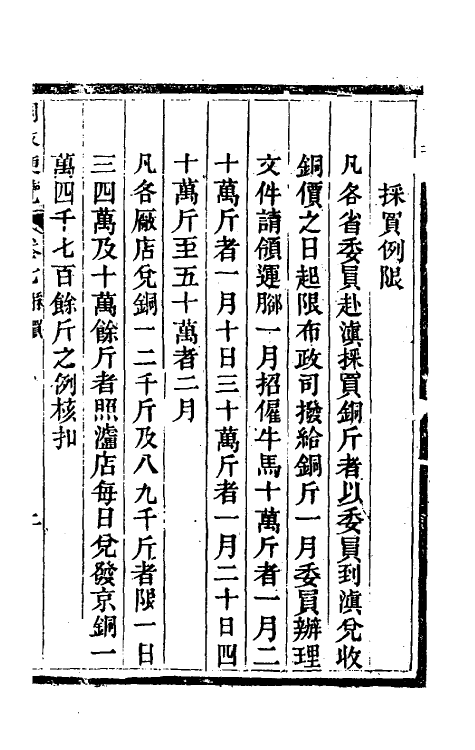 採買例限
凡各省委員赴滇採買銅斤者以委員到滇兌收
銅價之日起限布政司撥給銅斤一月委員辦理
文件請領運腳一月招僱牛馬十萬斤者一月二
十萬斤者一月十日三十萬斤者一月二十日四
十萬斤至五十萬者二月
凡各廠店兌銅一二千斤及八九千斤者限一日
三四萬及十萬餘斤者照瀘店每日兌發京銅一
萬四千七百餘斤之例核扣